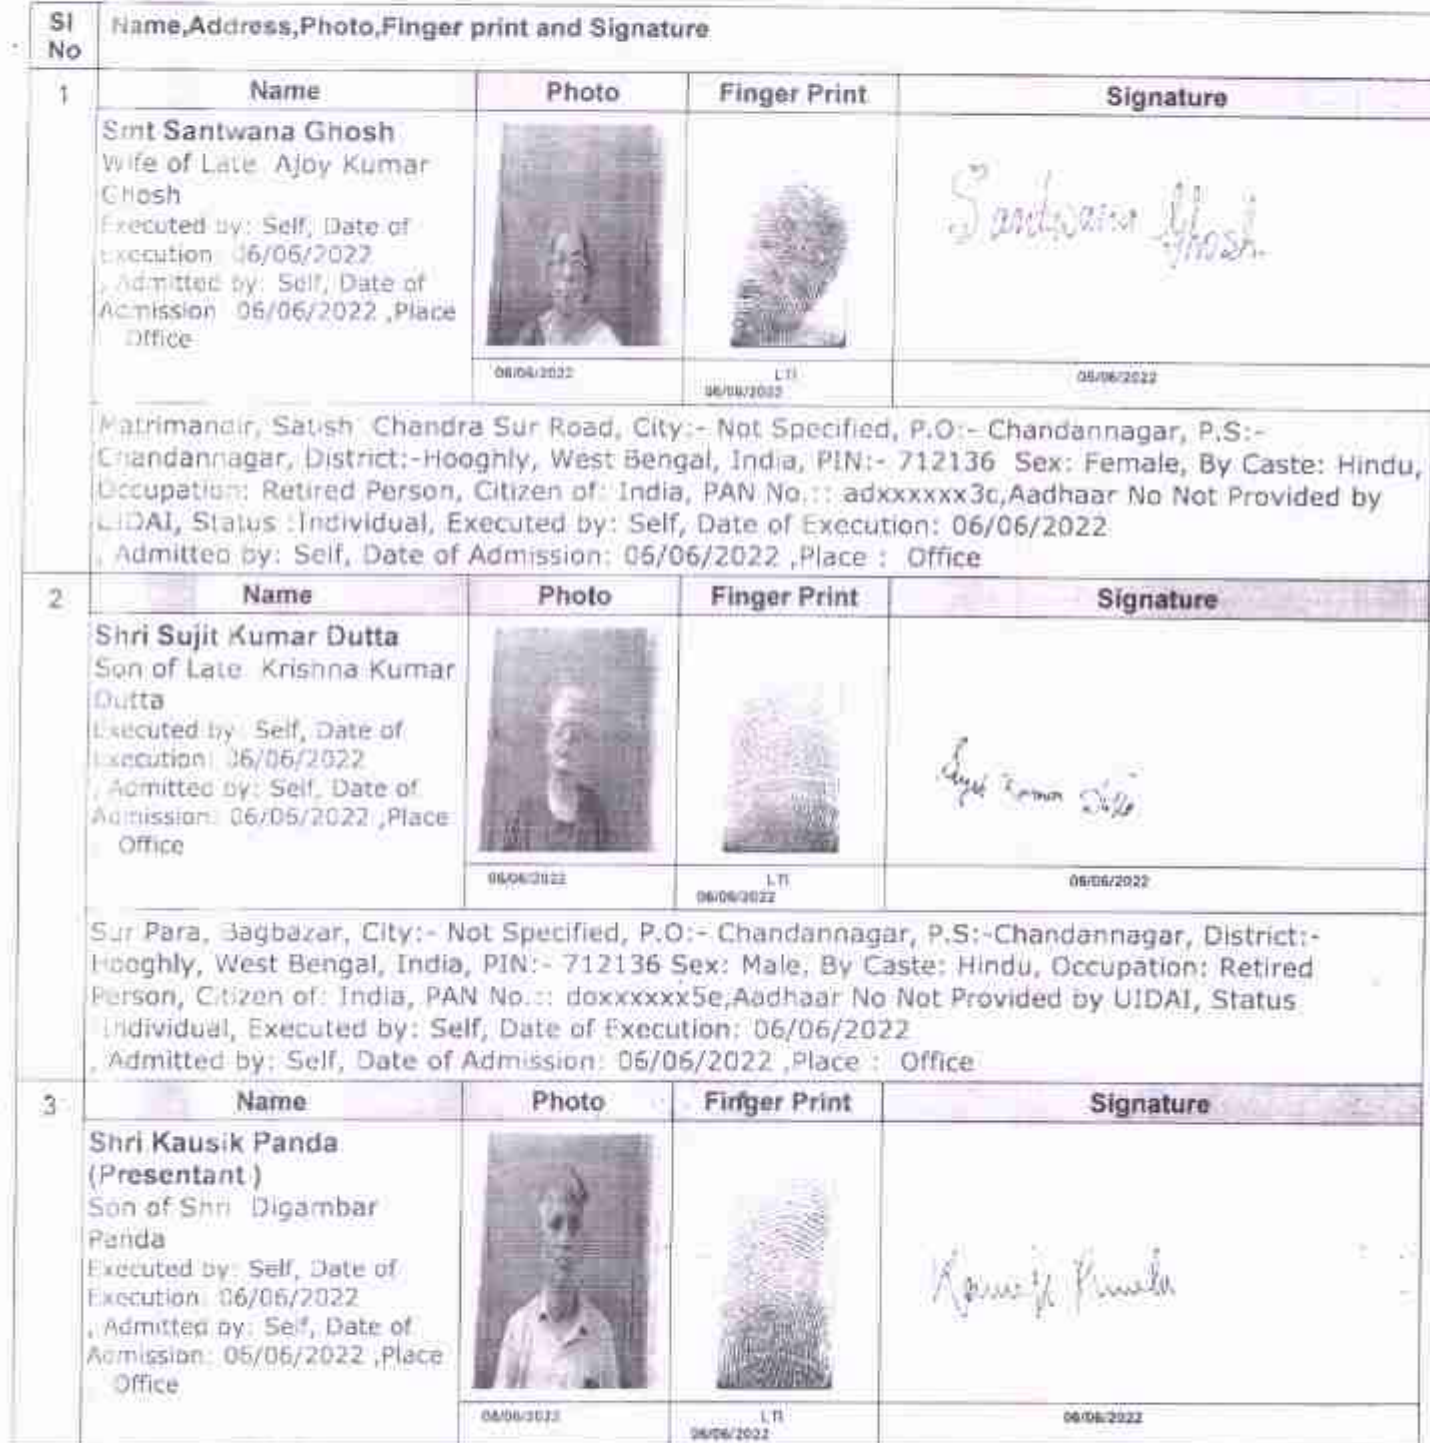 Sl No Name,Address,Photo,Finger print and Signature
1 Name Photo Finger Print Signature
Smt Santwana Ghosh
Wife of Late Ajoy Kumar
Ghosh
Executed by: Self, Date of
Execution: 06/06/2022
, Admitted by: Self, Date of
Admission: 06/06/2022 ,Place
Office
Santwana Ghosh
06/06/2022 LTI 06/06/2022 06/06/2022
Matrimandir, Satish Chandra Sur Road, City:- Not Specified, P.O:- Chandannagar, P.S:-
Chandannagar, District:-Hooghly, West Bengal, India, PIN:- 712136 Sex: Female, By Caste: Hindu,
Occupation: Retired Person, Citizen of: India, PAN No.:: adxxxxxx3c,Aadhaar No Not Provided by
UIDAI, Status :Individual, Executed by: Self, Date of Execution: 06/06/2022
, Admitted by: Self, Date of Admission: 06/06/2022 ,Place : Office
2 Name Photo Finger Print Signature
Shri Sujit Kumar Dutta
Son of Late Krishna Kumar
Dutta
Executed by: Self, Date of
Execution: 06/06/2022
, Admitted by: Self, Date of
Admission: 06/06/2022 ,Place
Office
Sujit Kumar Dutta
06/06/2022 LTI 06/06/2022 06/06/2022
Sur Para, Bagbazar, City:- Not Specified, P.O:- Chandannagar, P.S:-Chandannagar, District:-
Hooghly, West Bengal, India, PIN:- 712136 Sex: Male, By Caste: Hindu, Occupation: Retired
Person, Citizen of: India, PAN No.:: doxxxxxx5e,Aadhaar No Not Provided by UIDAI, Status
Individual, Executed by: Self, Date of Execution: 06/06/2022
, Admitted by: Self, Date of Admission: 06/06/2022 ,Place : Office
3 Name Photo Finger Print Signature
Shri Kausik Panda
(Presentant )
Son of Shri Digambar
Panda
Executed by: Self, Date of
Execution: 06/06/2022
, Admitted by: Self, Date of
Admission: 06/06/2022 ,Place
Office
Kausik Panda
06/06/2022 LTI 06/06/2022 06/06/2022